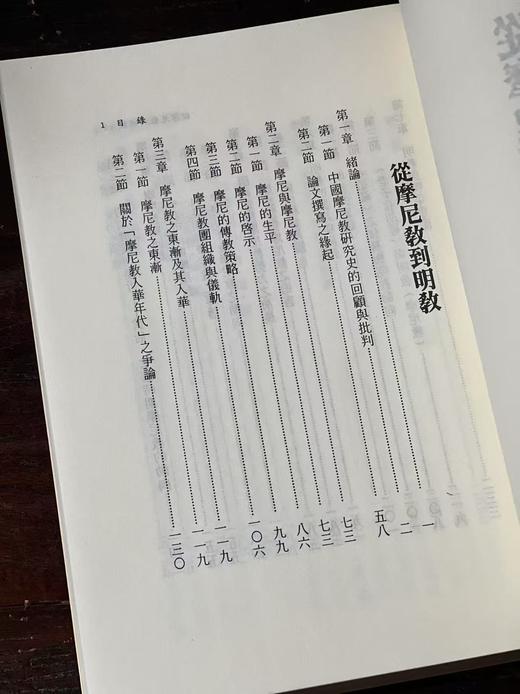 從摩尼教到明教
第一章 緒論……一
第一節 中國摩尼教研究史的回顧與批判……二
第二節 論文撰寫之緣起……五八
第二章 摩尼與摩尼教……七三
第一節 摩尼的生平……七三
第二節 摩尼的啓示……八六
第三節 摩尼的傳教策略……九九
第四節 摩尼教團組織與儀軌……一〇六
第三章 摩尼教之東漸及其入華……一一九
第一節 摩尼教之東漸……一一九
第二節 關於「摩尼教入華年代」之爭論……一三〇
1 目 錄